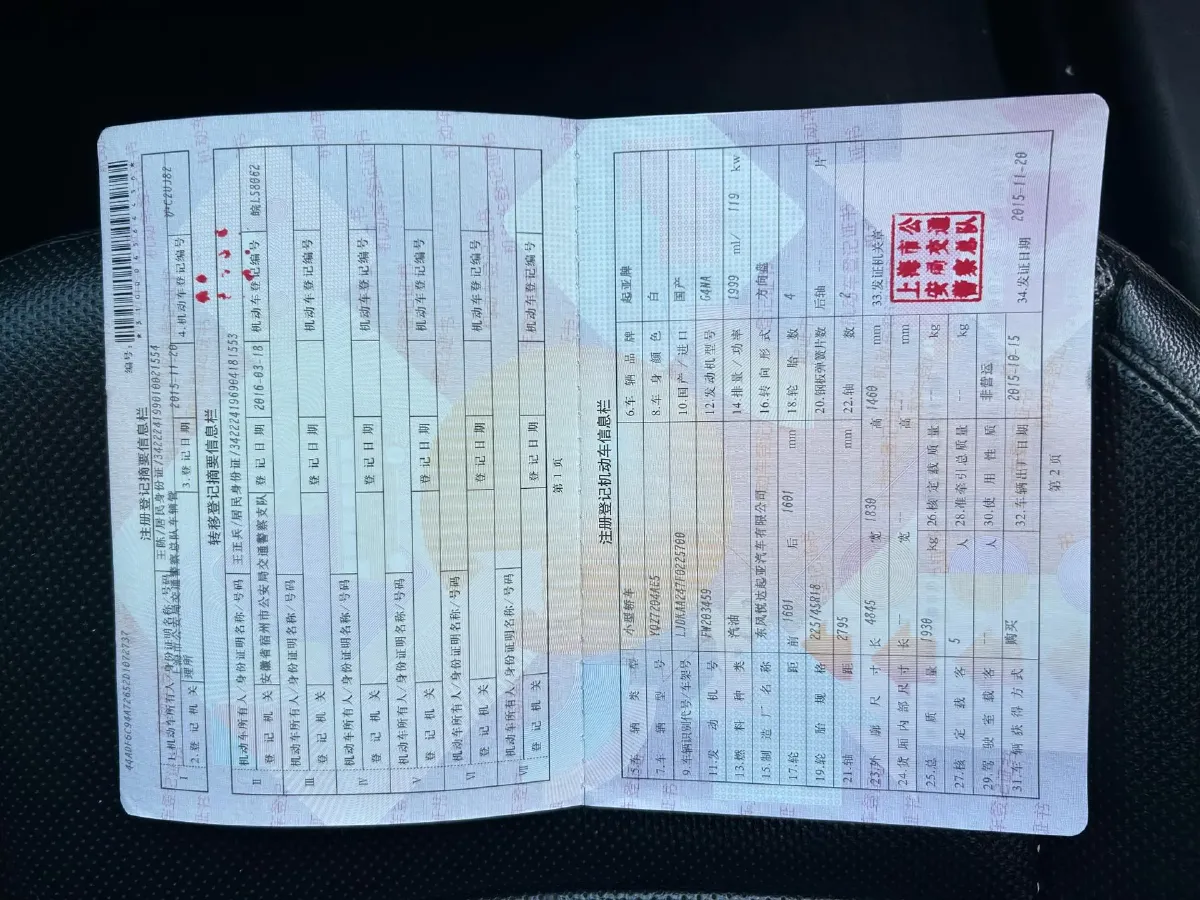 44A0F6C94A72652D1072737
编号:
注册登记摘要信息栏
Ⅰ 1.机动车所有人/身份证明名称/号码 王陈/居民身份证/342224199010021554
2.登记机关 上海市公安局交通警察总队车辆管理所 3.登记日期 2015-11-20 4.机动车登记编号
转移登记摘要信息栏
Ⅱ 机动车所有人/身份证明名称/号码 王正兵/居民身份证/342224196904181553
登记机关 安徽省宿州市公安局交通警察支队 登记日期 2016-03-18 机动车登记编号 皖LS8062
Ⅲ 机动车所有人/身份证明名称/号码
登记机关 登记日期 机动车登记编号
Ⅳ 机动车所有人/身份证明名称/号码
登记机关 登记日期 机动车登记编号
Ⅴ 机动车所有人/身份证明名称/号码
登记机关 登记日期 机动车登记编号
Ⅵ 机动车所有人/身份证明名称/号码
登记机关 登记日期 机动车登记编号
Ⅶ 机动车所有人/身份证明名称/号码
登记机关 登记日期 机动车登记编号
第 1 页
注册登记机动车信息栏
5.车辆类型 小型轿车 6.车辆品牌 起亚牌
7.车辆型号 YQZ7204AE5 8.车身颜色 白
9.车辆识别代号/车架号 LJDKAA247F0225700 10.国产/进口 国产
11.发动机号 FW203459 12.发动机型号 G4NA
13.燃料种类 汽油 14.排量/功率 1999 ml/ 119 kw
15.制造厂名称 东风悦达起亚汽车有限公司 16.转向形式 方向盘
17.轮距 前 1601 后 1601 mm 18.轮胎数 4
19.轮胎规格 225/45R18 20.钢板弹簧片数 后轴 -- 片
21.轴距 2795 mm 22.轴数 2
23.外廓尺寸 长 4845 宽 1830 高 1460 mm 33.发证机关章
24.货厢内部尺寸 长 -- 宽 -- 高 -- mm
25.总质量 1930 kg 26.核定载质量 -- kg
27.核定载客 5 人 28.准牵引总质量 -- kg
29.驾驶室载客 -- 人 30.使用性质 非营运
31.车辆获得方式 购买 32.车辆出厂日期 2015-10-15 34.发证日期 2015-11-20
上海市公
安局交通
警察总队
第 2 页